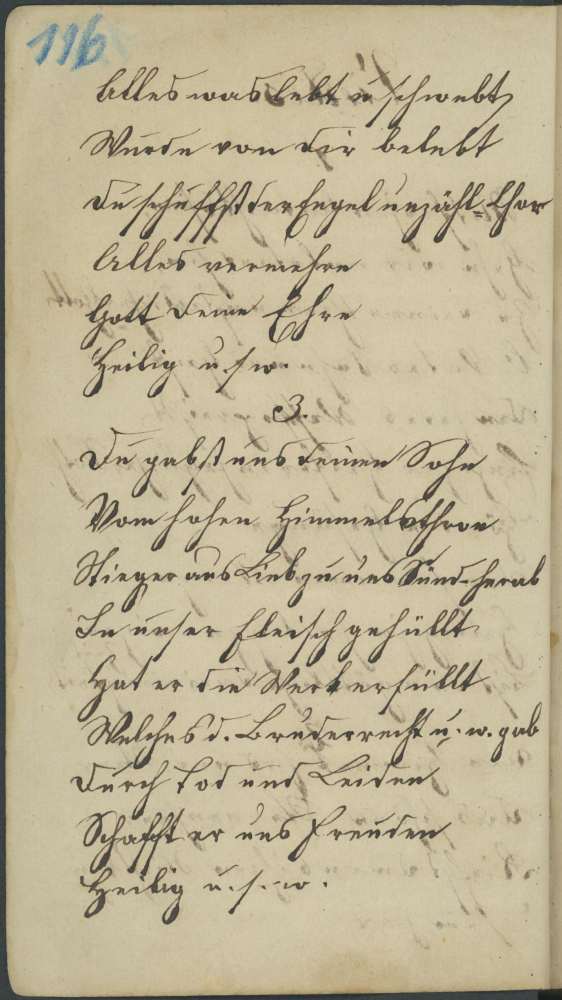 116
Alles was lebt u schwebt
Wurde von dir belebt
Du schuffst der Engel unzähl- Chor
Alles vermehre
Gott deine Ehre
Heilig u. s w.
3.
Du gabst uns deinen Sohn
Vom hohen Himmelsthron
Stieg er aus Lieb zu uns Sünd- herab
In unser Fleisch gehüllt
Hat er die Werk erfüllt
Welches d. Bruderrecht u. w. gab
Durch Tod und Leiden
Schafft er uns Freuden
Heilig u. s. w.